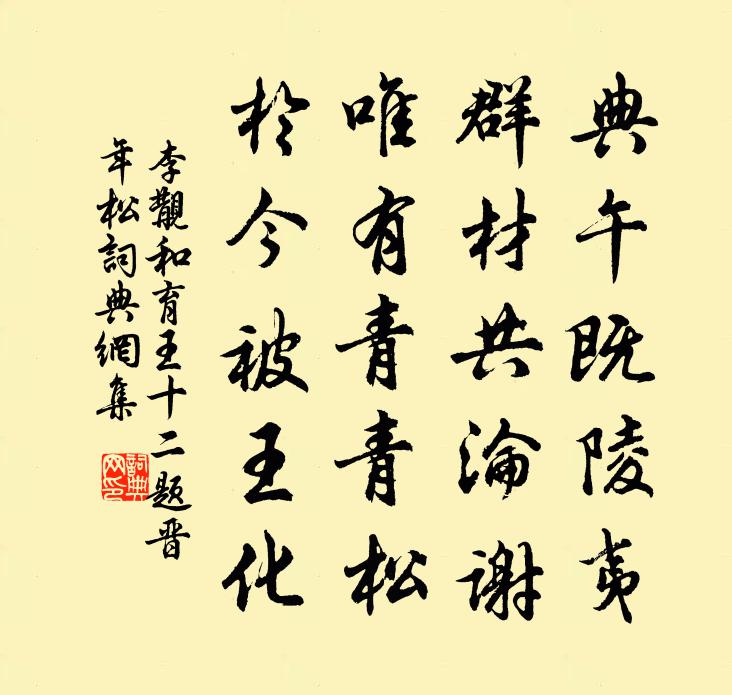 典午既陵夷
群材共淪谢
唯有青青松
於今被王化
李觀和育王十二题晋
年松詞典網集
詞典
网印